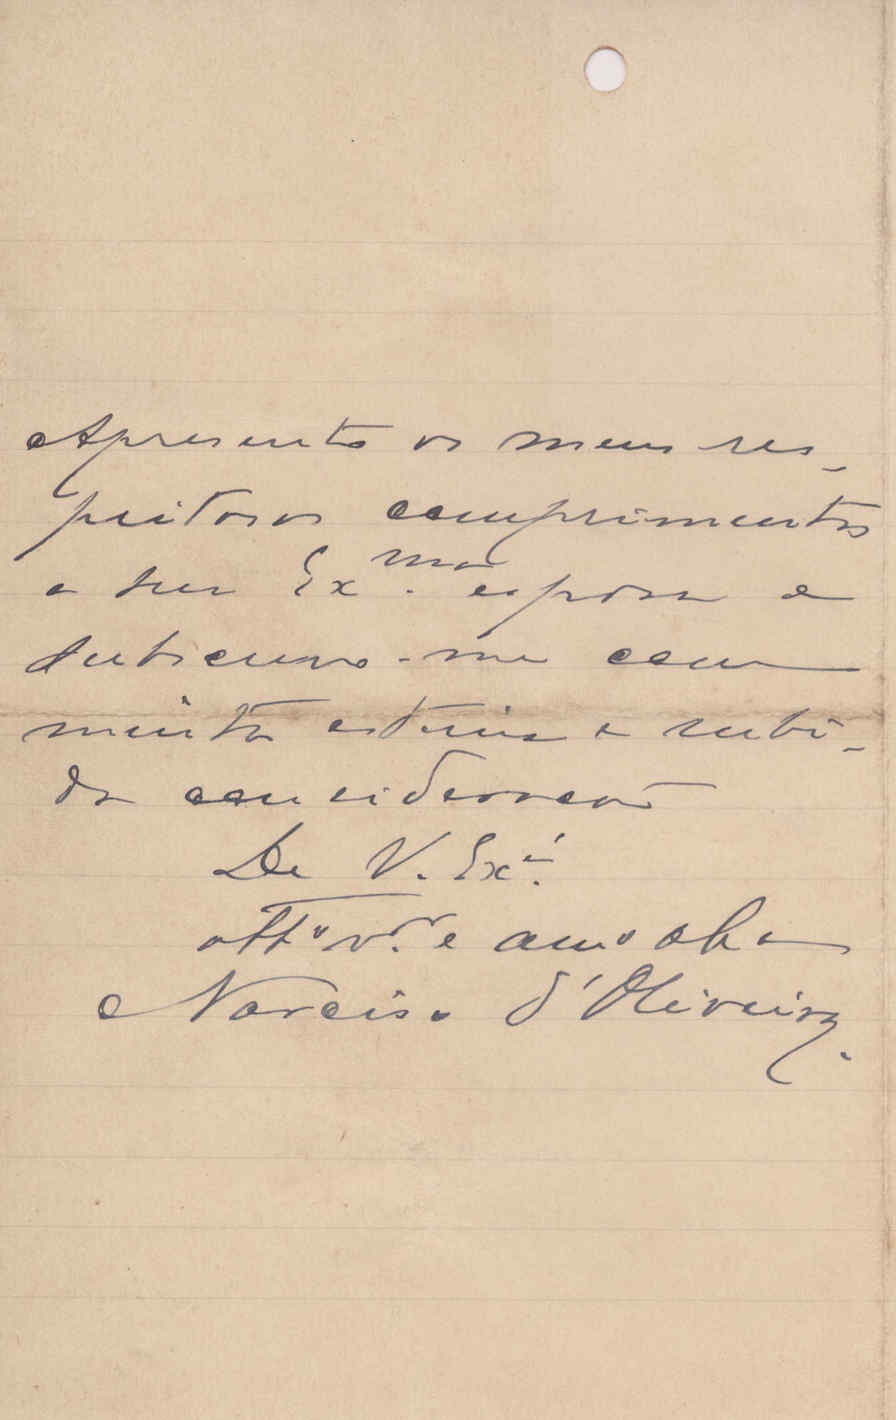 Apresento os meus res-
peitosos comprimentos
a sua Ex.ma esposa e
subscrevo-me com
muita estima e subi-
da consideração
De V. Ex.ª
att.º v.or e am.º
Narciso d'Oliveira.